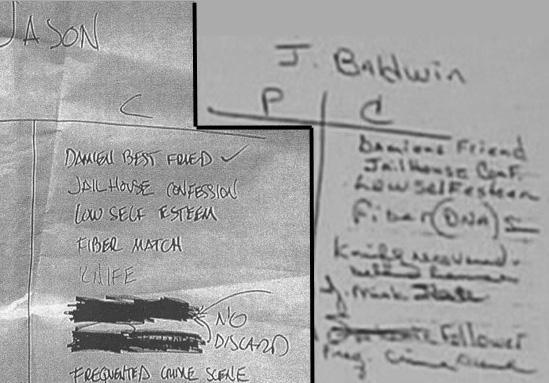 JASON
C
DAMIEN BEST FRIED ✓
JAILHOUSE CONFESSION
LOW SELF ESTEEM
FIBER MATCH
KNIFE
NO
DISCARD
FREQUENTED CRIME SCENE
J. Baldwin
P C
Damiens Friend
Jailhouse Conf.
Low Self esteem
Fiber (DNA)
Knife recovered
behind
Follower
Freq. Crime